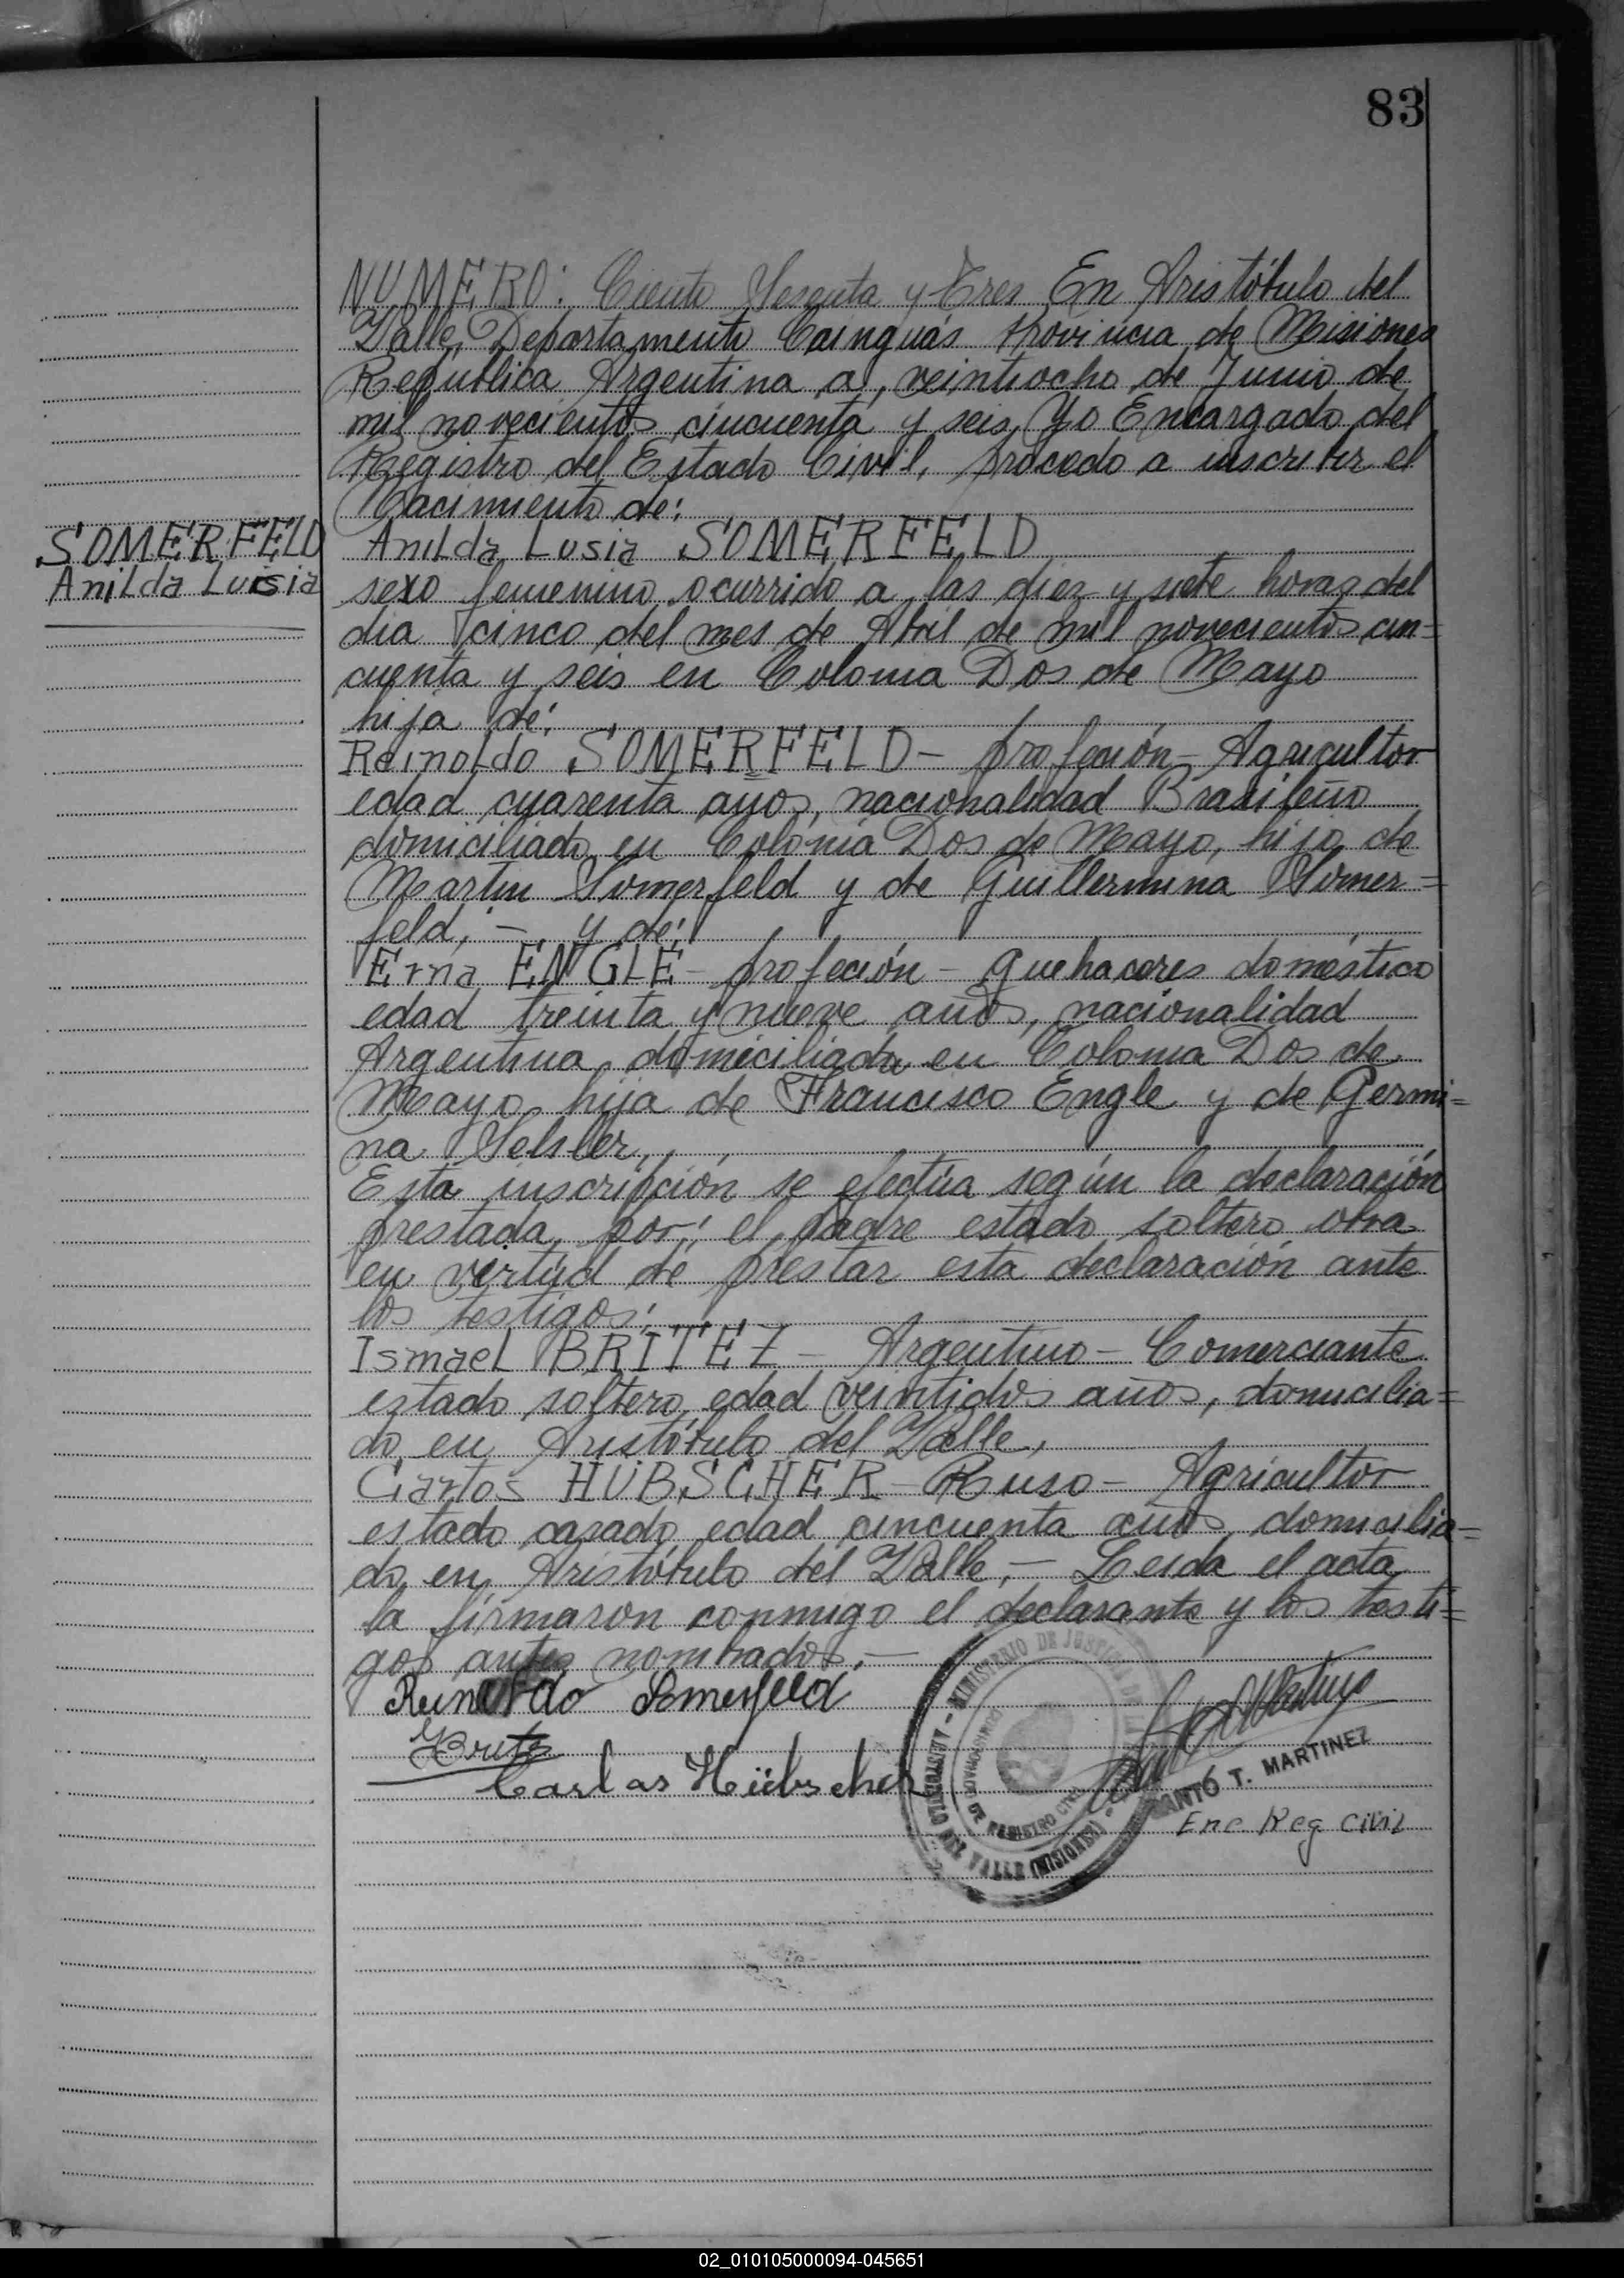 83
NUMERO: Ciento Sesenta y Tres En Aristóbulo del
Valle, Departamento Cainguás Provincia de Misiones
República Argentina a, veintiocho de Junio de
mil novecientos cincuenta y seis, Yo Encargado del
Registro del Estado Civil, procedo a inscribir el
Nacimiento de:
SOMERFELD
Anilda Luisia
Anilda Lusia SOMERFELD
sexo femenino ocurrido a las diez y siete horas del
dia cinco del mes de Abril de mil novecientos cin=
cuenta y seis en Colonia Dos de Mayo
hija de:
Reinoldo SOMERFELD - profeción - Agricultor
edad cuarenta años, nacionalidad Brasileño
domiciliado en Colonia Dos de Mayo, hijo de
Martin Somerfeld y de Guillermina Somer=
feld, - y de:
Erna ENGLE - profeción - quehaceres doméstico
edad treinta y nueve años, nacionalidad
Argentina, domiciliada en Colonia Dos de
Mayo, hija de Francisco Engle y de Germi=
na
Esta inscripción se efectúa según la declaración
prestada por: el padre estado soltero obra
en vertud de prestar esta declaración ante
los testigos:
Ismael BRITEZ - Argentino - Comerciante
estado soltero, edad veintidos años, domicilia=
do en Aristóbulo del Valle,
Carlos HÜBSCHER - Ruso - Agricultor
estado casado, edad cincuenta años, domicilia=
do en Aristóbulo del Valle, - Leida el acta
la firmaron conmigo el declarante y los testi=
gos antes nombrados. -
Reinoldo Somerfeld
Britez
Carlos Hübscher
MINISTERIO DE JUSTICIA
REGISTRO CIVIL
ARISTOBULO DEL VALLE (MISIONES)
T. MARTINEZ
Enc. Reg Civil
02_010105000094-045651